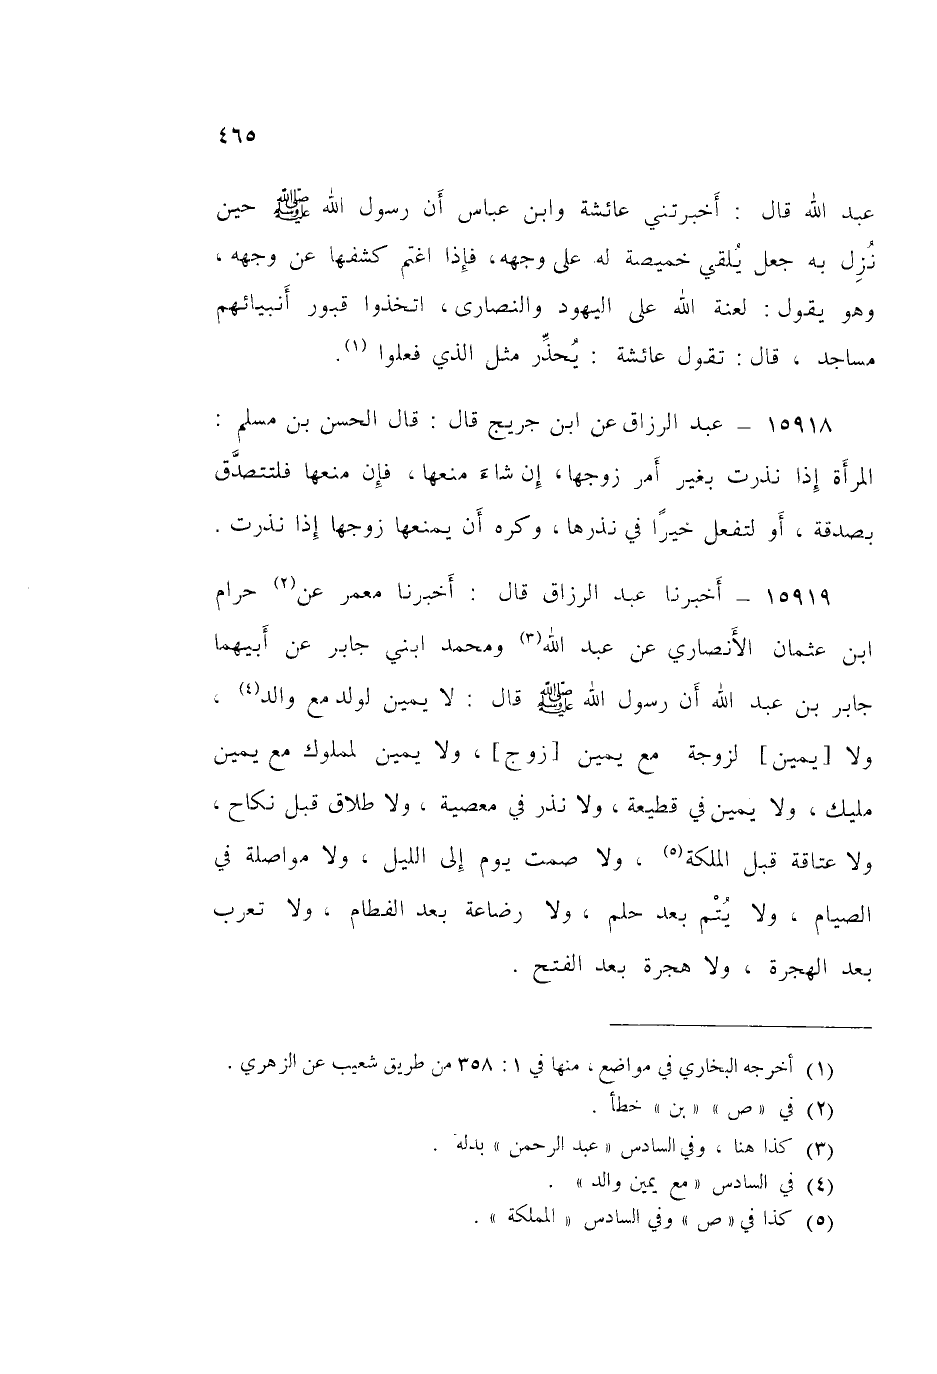 ٤٦٥
عبد الله قال : أخبرتني عائشة وابن عباس أن رسول الله ﷺ حين
نُزِل به جعل يُلقي خميصة له على وجهه، فإذا اغتم كشفها عن وجهه ،
وهو يقول : لعنة الله على اليهود والنصارى، اتخذوا قبور أنبيائهم
مساجد ، قال : تقول عائشة : يُحذِّر مثل الذي فعلوا (١).
١٥٩١٨ – عبد الرزاق عن ابن جريج قال : قال الحسن بن مسلم :
المرأة إذا نذرت بغير أمر زوجها، إن شاءَ منعها، فإن منعها فلتتصدَّق
بصدقة ، أو لتفعل خيرًا في نذرها، وكره أن يمنعها زوجها إذا نذرت .
١٥٩١٩ – أخبرنا عبد الرزاق قال : أخبرنا معمر عن(٢) حرام
ابن عثمان الأنصاري عن عبد الله(٣) ومحمد ابني جابر عن أبيهما
جابر بن عبد الله أن رسول الله ﷺ قال : لا يمين لولد مع والد(٤) ،
ولا [يمين] لزوجة مع يمين [زوج] ، ولا يمين لمملوك مع يمين
مليك ، ولا يمين في قطيعة ، ولا نذر في معصية ، ولا طلاق قبل نكاح ،
ولا عتاقة قبل الملكة(٥) ، ولا صمت يوم إلى الليل ، ولا مواصلة في
الصيام ، ولا يُتْم بعد حلم ، ولا رضاعة بعد الفطام ، ولا تعرب
بعد الهجرة ، ولا هجرة بعد الفتح .
(١) أخرجه البخاري في مواضع، منها في ١ : ٣٥٨ من طريق شعيب عن الزهري .
(٢) في « ص » « بن » خطأ .
(٣) كذا هنا ، وفي السادس « عبد الرحمن » بدله .
(٤) في السادس « مع يمين والد » .
(٥) كذا في « ص » وفي السادس « المملكة » .